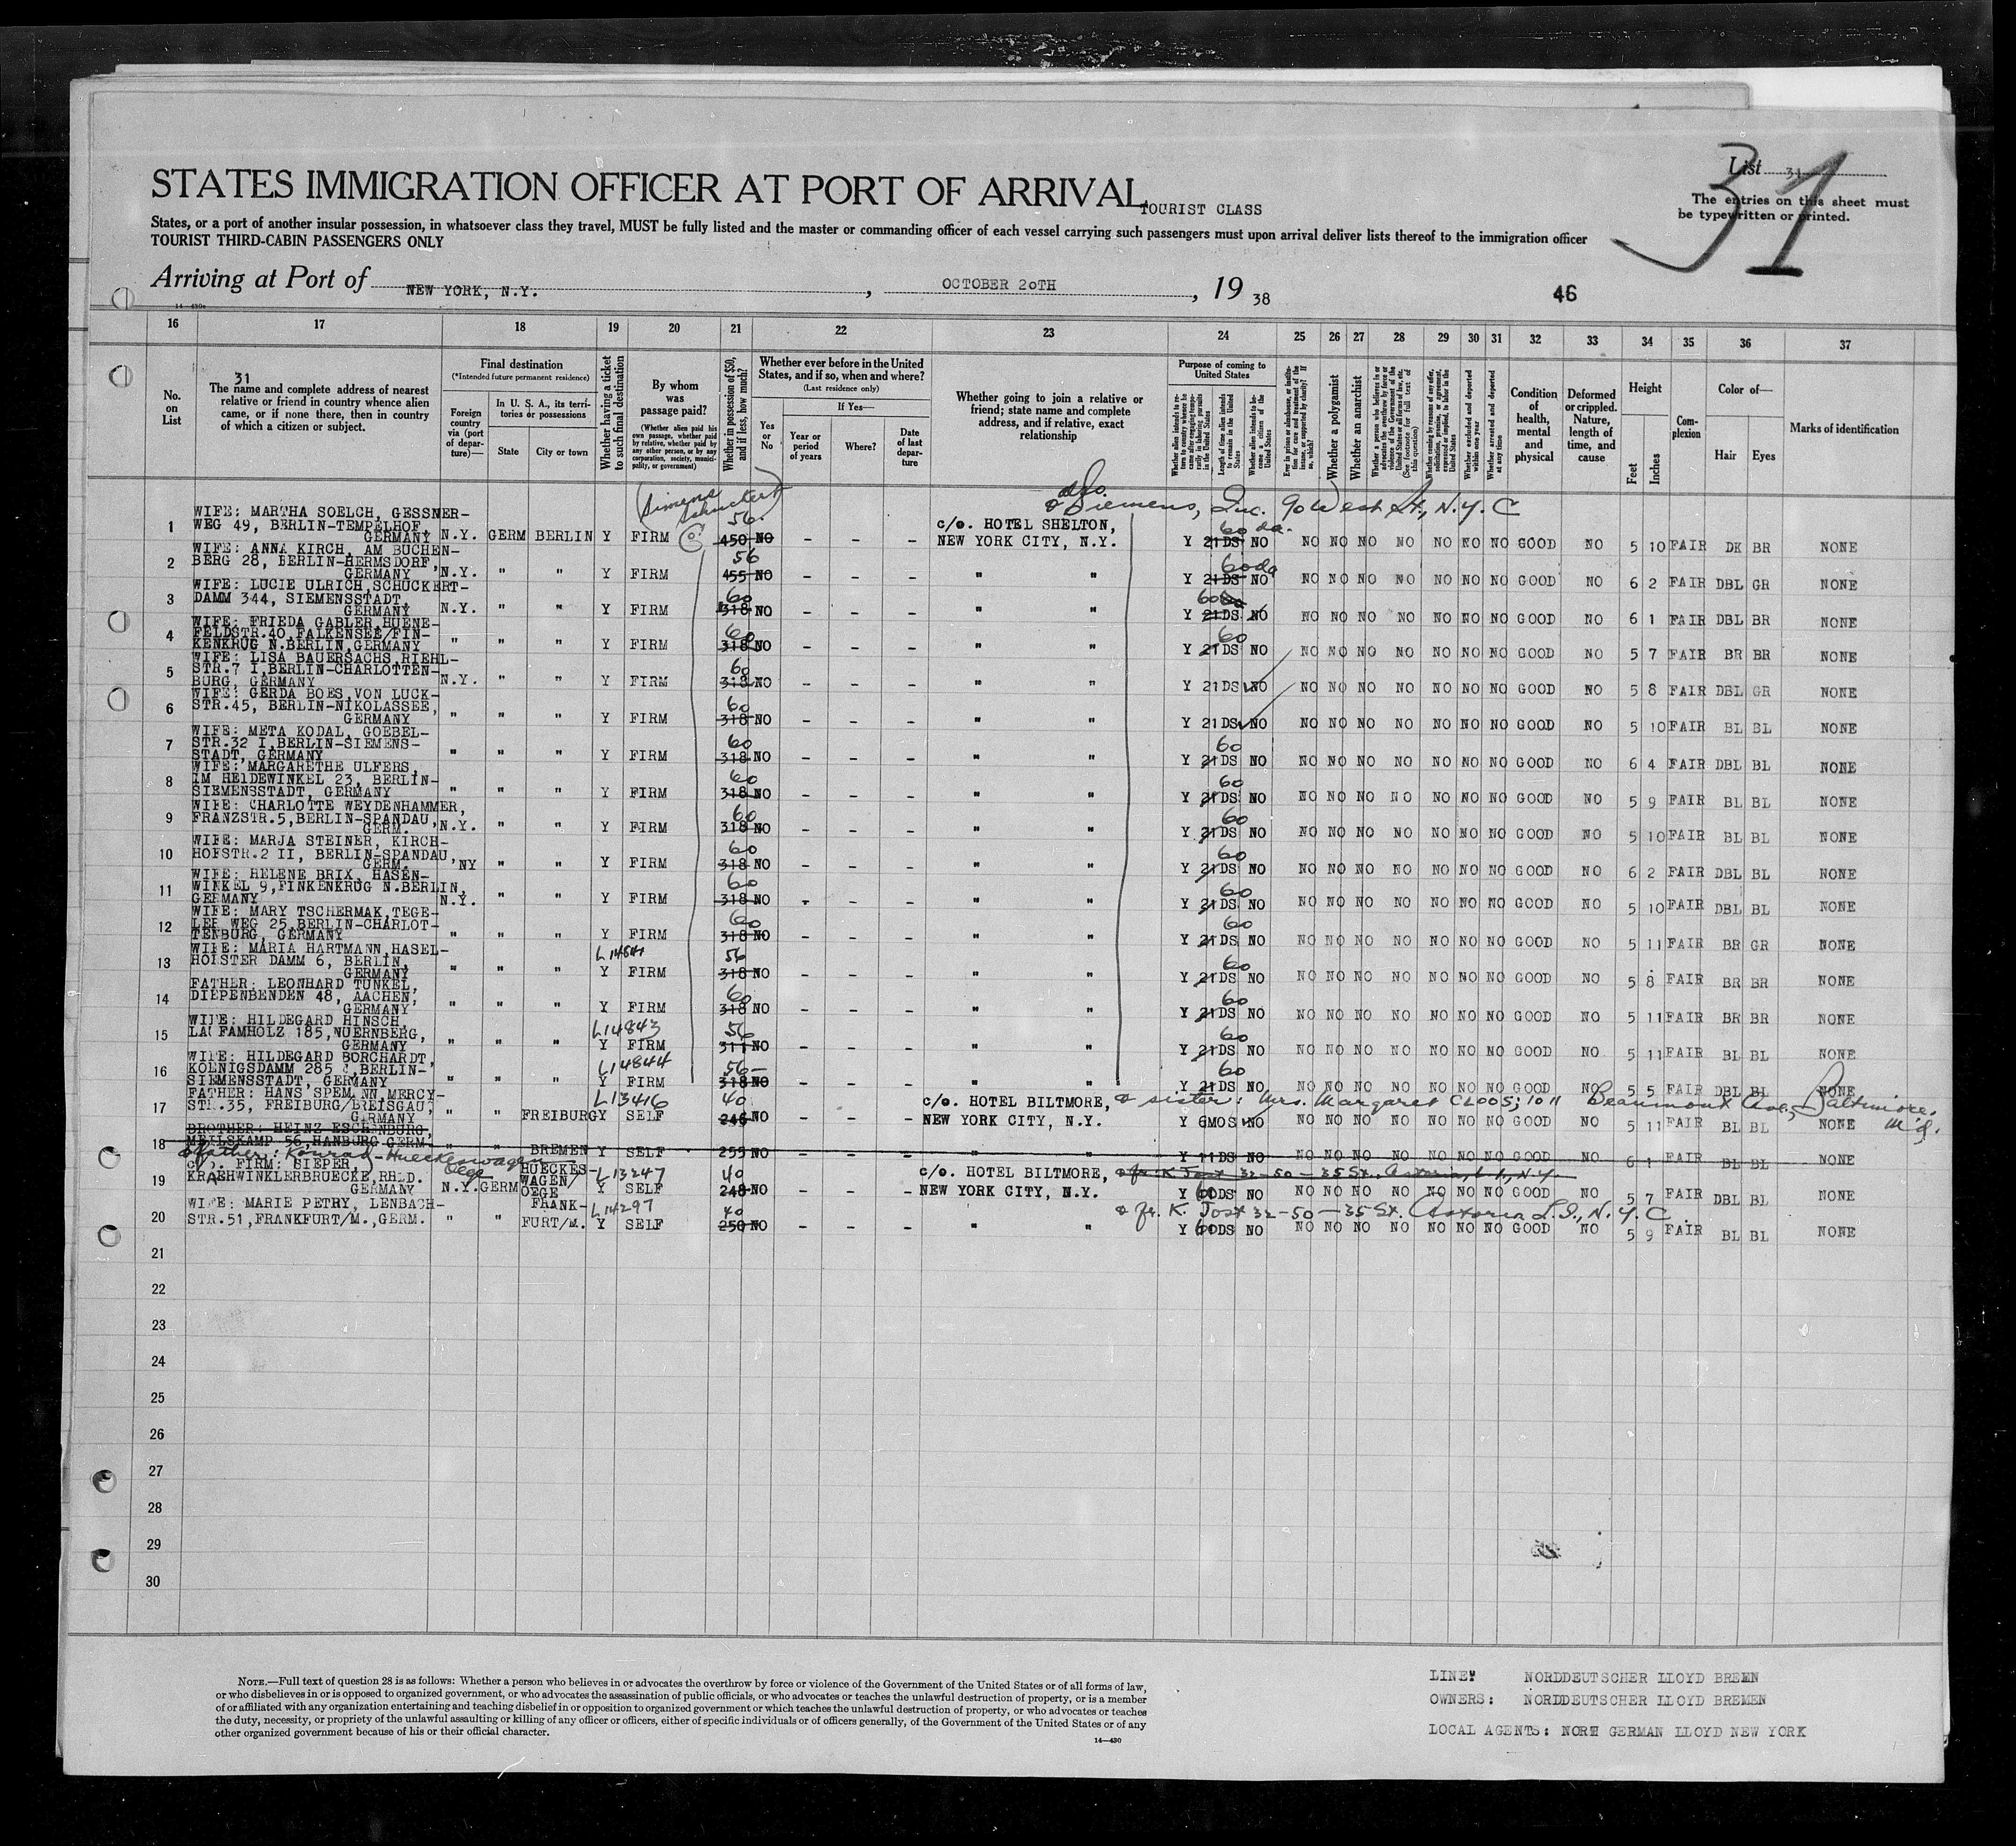 List 31
31
STATES IMMIGRATION OFFICER AT PORT OF ARRIVAL
TOURIST CLASS
The entries on this sheet must
be typewritten or printed.
States, or a port of another insular possession, in whatsoever class they travel, MUST be fully listed and the master or commanding officer of each vessel carrying such passengers must upon arrival deliver lists thereof to the immigration officer
TOURIST THIRD-CABIN PASSENGERS ONLY
Arriving at Port of NEW YORK, N.Y. , OCTOBER 20TH , 19 38
46
16 17 18 19 20 21 22 23 24 25 26 27 28 29 30 31 32 33 34 35 36 37
No. on List
31
The name and complete address of nearest relative or friend in country whence alien came, or if none there, then in country of which a citizen or subject.
Final destination
(*Intended future permanent residence)
Foreign country via (port of departure)—
In U. S. A., its territories or possessions
State City or town
Whether having a ticket to such final destination
By whom was passage paid?
(Whether alien paid his own passage, whether paid by relative, whether paid by any other person, or by any corporation, society, municipality, or government)
Whether in possession of $50, and if less, how much?
Whether ever before in the United States, and if so, when and where?
(Last residence only)
Yes or No
If Yes—
Year or period of years
Where?
Date of last departure
Whether going to join a relative or friend; state name and complete address, and if relative, exact relationship
Purpose of coming to United States
Whether a polygamist
Whether an anarchist
Condition of health, mental and physical
Deformed or crippled. Nature, length of time, and cause
Height
Feet Inches
Complexion
Color of—
Hair Eyes
Marks of identification
Siemens, Inc. 90 West St., N.Y.C
1 WIFE: MARTHA SOELCH, GESSNER-
WEG 49, BERLIN-TEMPELHOF,
GERMANY N.Y. GERM BERLIN Y FIRM 56 450 NO – – – C/O. HOTEL SHELTON, NEW YORK CITY, N.Y. Y 60 da. 21DS NO NO NO NO NO NO NO NO GOOD NO 5 10 FAIR DK BR NONE
2 WIFE: ANNA KIRCH, AM BUCHEN-
BERG 28, BERLIN-HERMSDORF,
GERMANY N.Y. " " Y FIRM 56 455 NO – – – " " Y 60da 21DS NO NO NO NO NO NO NO NO GOOD NO 6 2 FAIR DBL GR NONE
3 WIFE: LUCIE ULRICH,SCHUCKERT-
DAMM 344, SIEMENSSTADT,
GERMANY N.Y. " " Y FIRM 60 318 NO – – – " " Y 60 21DS NO NO NO NO NO NO NO NO GOOD NO 6 1 FAIR DBL BR NONE
4 WIFE: FRIEDA GABLER,HUENE-
FELDSTR.40,FALKENSEE/FIN-
KENKRUG N.BERLIN,GERMANY " " " Y FIRM 60 318 NO – – – " " Y 60 21DS NO NO NO NO NO NO NO NO GOOD NO 5 7 FAIR BR BR NONE
5 WIFE: LISA BAUERSACHS,RIEHL-
STR.7 I,BERLIN-CHARLOTTEN-
BURG, GERMANY N.Y. " " Y FIRM 60 318 NO – – – " " Y 21DS NO NO NO NO NO NO NO NO GOOD NO 5 8 FAIR DBL GR NONE
6 WIFE: GERDA BOES,VON LUCK-
STR.45, BERLIN-NIKOLASSEE,
GERMANY " " " Y FIRM 60 318 NO – – – " " Y 21DS NO NO NO NO NO NO NO NO GOOD NO 5 10 FAIR BL BL NONE
7 WIFE: META KODAL, GOEBEL-
STR.32 I,BERLIN-SIEMENS-
STADT, GERMANY " " " Y FIRM 60 318 NO – – – " " Y 60 21DS NO NO NO NO NO NO NO NO GOOD NO 6 4 FAIR DBL BL NONE
8 WIFE: MARGARETHE ULFERS,
IM HEIDEWINKEL 23, BERLIN-
SIEMENSSTADT, GERMANY " " " Y FIRM 60 318 NO – – – " " Y 60 21DS NO NO NO NO NO NO NO NO GOOD NO 5 9 FAIR BL BL NONE
9 WIFE: CHARLOTTE WEYDENHAMMER,
FRANZSTR.5,BERLIN-SPANDAU,
GERM. N.Y. " " Y FIRM 60 318 NO – – – " " Y 60 21DS NO NO NO NO NO NO NO NO GOOD NO 5 10 FAIR BL BL NONE
10 WIFE: MARJA STEINER, KIRCH-
HOFSTR.2 II, BERLIN-SPANDAU,
GERM. NY " " Y FIRM 60 318 NO – – – " " Y 60 21DS NO NO NO NO NO NO NO NO GOOD NO 6 2 FAIR DBL BL NONE
11 WIFE: HELENE BRIX, HASEN-
WINKEL 9,FINKENKRUG N.BERLIN,
GERMANY N.Y. " " Y FIRM 60 318 NO – – – " " Y 60 21DS NO NO NO NO NO NO NO NO GOOD NO 5 10 FAIR DBL BL NONE
12 WIFE: MARY TSCHERMAK,TEGE-
LER WEG 25,BERLIN-CHARLOT-
TENBURG, GERMANY " " " Y FIRM 60 318 NO – – – " " Y 60 21DS NO NO NO NO NO NO NO NO GOOD NO 5 11 FAIR BR GR NONE
13 WIFE: MARIA HARTMANN,HASEL-
HOISTER DAMM 6, BERLIN,
GERMANY " " " Y FIRM 56 318 NO – – – " " Y 60 21DS NO NO NO NO NO NO NO NO GOOD NO 5 8 FAIR BR BR NONE
14 FATHER: LEONHARD TUNKEL,
DIEPENBENDEN 48, AACHEN,
GERMANY " " " Y FIRM 60 318 NO – – – " " Y 60 21DS NO NO NO NO NO NO NO NO GOOD NO 5 11 FAIR BR BR NONE
15 WIFE: HILDEGARD HINSCH,
LAUFAMHOLZ 185,NUERNBERG,
GERMANY " " " L14843 Y FIRM 56 311 NO – – – " " Y 60 21DS NO NO NO NO NO NO NO NO GOOD NO 5 11 FAIR BL BL NONE
16 WIFE: HILDEGARD BORCHARDT,
KOENIGSDAMM 285, BERLIN-
SIEMENSSTADT, GERMANY " " " L14844 Y FIRM 56 318 NO – – – " " Y 60 21DS NO NO NO NO NO NO NO NO GOOD NO 5 5 FAIR DBL BL NONE
17 FATHER: HANS SPEMANN,MERCY-
STR.35, FREIBURG/BREISGAU,
GERMANY " " FREIBURG L13416 Y SELF 40 246 NO – – – C/O. HOTEL BILTMORE, NEW YORK CITY, N.Y. sister: Mrs. Margaret CLOOS; 1011 Beaumont Ave, Baltimore, Md. Y 6MOS NO NO NO NO NO NO NO NO GOOD NO 5 11 FAIR BL BL NONE
18 BROTHER: HEINZ ESCHENBURG,
MEILSKAMP 56,HANBURG GERM. " " BREMEN Y SELF 255 NO – – – " " Y 11DS NO NO NO NO NO NO NO NO GOOD 6 1 FAIR BL BL NONE
father: Konrad - Hueckeswagen
19 C/O. FIRM: SIEPER,
KRAEHWINKLERBRUECKE,RHLD.
GERMANY N.Y. GERM HUECKES-WAGEN/OEGE L13247 Y SELF 40 248 NO – – – C/O. HOTEL BILTMORE, NEW YORK CITY, N.Y. fr. K Jost 32-50-35 St., Astoria, L.I., N.Y. Y 60 DS NO NO NO NO NO NO NO NO GOOD NO 5 7 FAIR DBL BL NONE
20 WIFE: MARIE PETRY, LENBACH-
STR.51,FRANKFURT/M.,GERM. " " FRANK-FURT/M. L14297 Y SELF 40 250 NO – – – " " fr. K. Jost 32-50-35 St. Astoria L.I., N.Y.C. Y 60 DS NO NO NO NO NO NO NO NO GOOD NO 5 9 FAIR BL BL NONE
21
22
23
24
25
26
27
28
29
30
NOTE.—Full text of question 28 is as follows: Whether a person who believes in or advocates the overthrow by force or violence of the Government of the United States or of all forms of law,
or who disbelieves in or is opposed to organized government, or who advocates the assassination of public officials, or who advocates or teaches the unlawful destruction of property, or is a member
of or affiliated with any organization entertaining and teaching disbelief in or opposition to organized government or which teaches the unlawful destruction of property, or who advocates or teaches
the duty, necessity, or propriety of the unlawful assaulting or killing of any officer or officers, either of specific individuals or of officers generally, of the Government of the United States or of any
other organized government because of his or their official character.
14—430
LINE: NORDDEUTSCHER LLOYD BREMEN
OWNERS: NORDDEUTSCHER LLOYD BREMEN
LOCAL AGENTS: NORTH GERMAN LLOYD NEW YORK